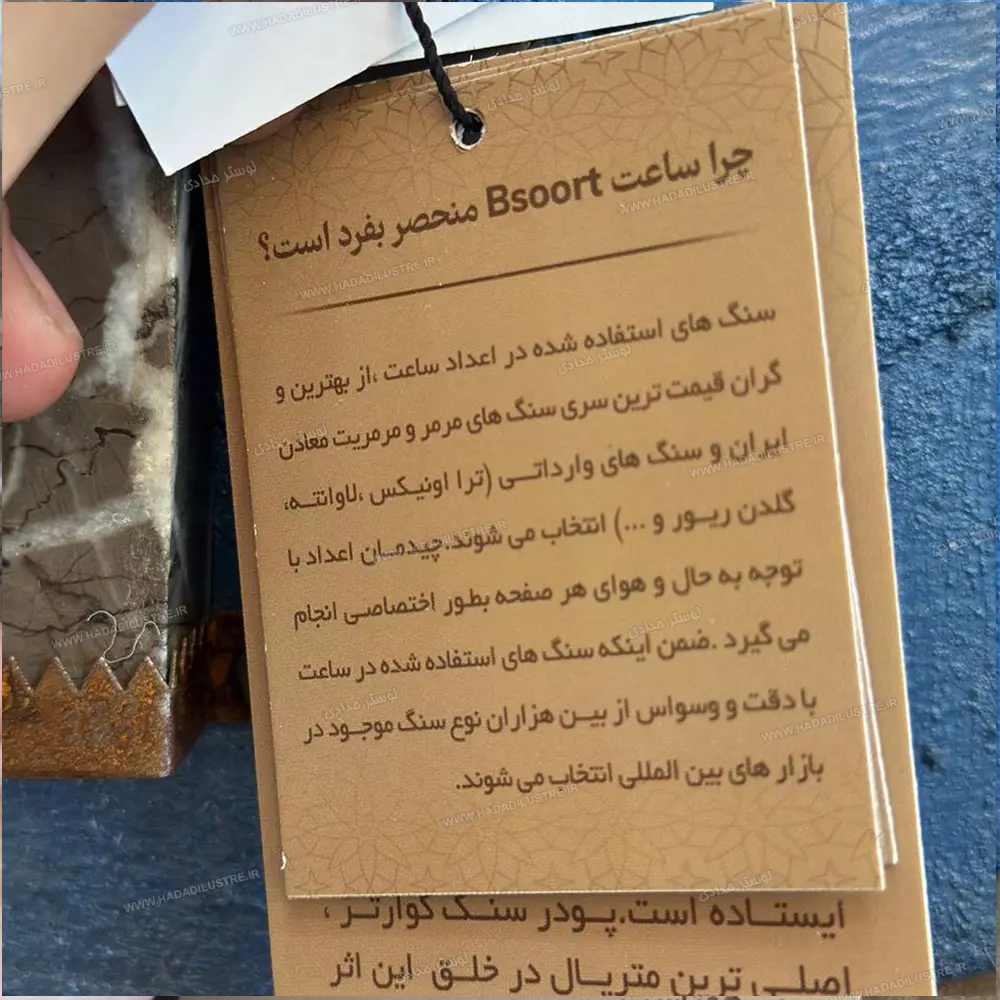 چرا ساعت Bsoort منحصر بفرد است؟
سنگ های استفاده شده در اعداد ساعت ،از بهترین و
گران قیمت ترین سری سنگ های مرمر و مرمریت معادن
ایران و سنگ های وارداتی (ترا اونیکس ،لاوانته،
گلدن ریور و ...) انتخاب می شوند.چیدمان اعداد با
توجه به حال و هوای هر صفحه بطور اختصاصی انجام
می گیرد .ضمن اینکه سنگ های استفاده شده در ساعت
با دقت و وسواس از بین هزاران نوع سنگ موجود در
بازار های بین المللی انتخاب می شوند.
ایستاده است.پودر سنگ کوارتز ،
اصلی ترین متریال در خلق این اثر
WWW.HADADILUSTRE.IR
لوستر حدادی